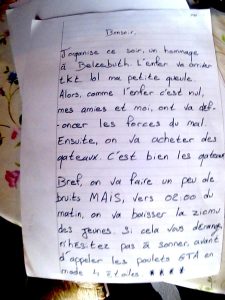 Bonsoir,
J'organise ce soir, un hommage
à Belzebuth. L'enfer va arriver
tkt bl ma petite gueule.
Alors, comme l'enfer c'est nul,
mes amies et moi, ont va déf-
oncer les forces du mal.
Ensuite, on va acheter des
gateaux. C'est bien les gateaux
Bref, on va faire un peu de
bruits MAIS, vers 02:00 du
matin, on va baisser la zicmu
des jeunes. Si cela vous dérange,
n'hésitez pas à sonner, avant
d'appeler les poulets GTA en
mode 4 étoiles. ★★★★